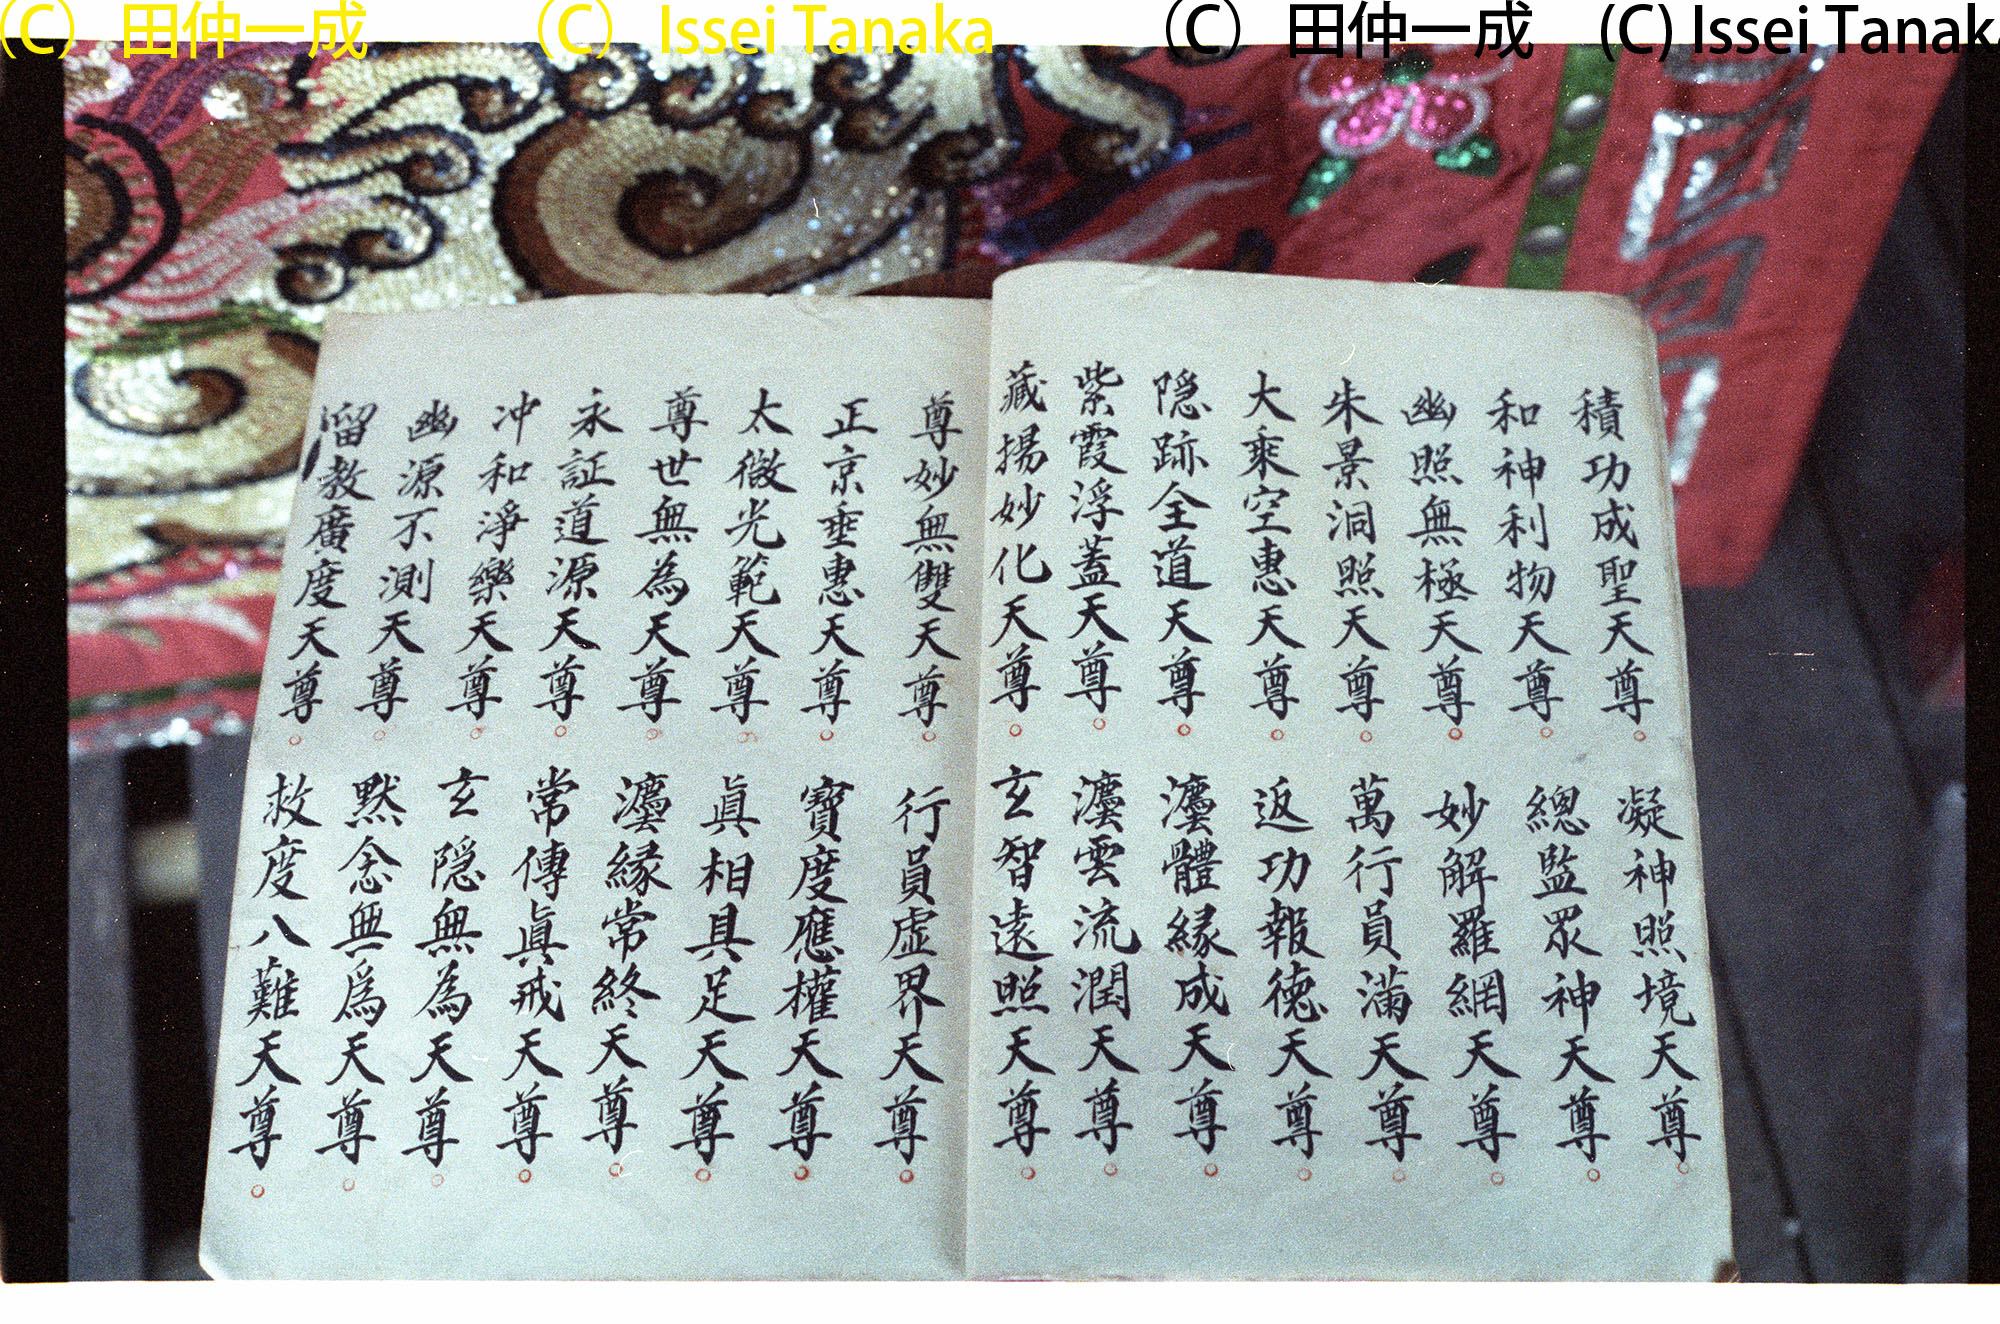 (C) 田仲一成 (C) Issei Tanaka (C) 田仲一成 (C) Issei Tanaka
積功成聖天尊 凝神照境天尊
和神利物天尊 總監眾神天尊
幽照無極天尊 妙解羅網天尊
朱景洞照天尊 萬行員滿天尊
大乘空惠天尊 返功報德天尊
隐跡全道天尊 體緣成天尊
紫霞浮蓋天尊 雲流潤天尊
藏揚妙化天尊 玄智遠照天尊
尊妙無雙天尊 行員虛界天尊
正京垂惠天尊 寶度應權天尊
太微光範天尊 眞相具足天尊
尊世無為天尊 緣常終天尊
永証道源天尊 常傳眞戒天尊
冲和淨樂天尊 玄隐無為天尊
幽源不測天尊 默念無爲天尊
留教廣度天尊 救度八難天尊